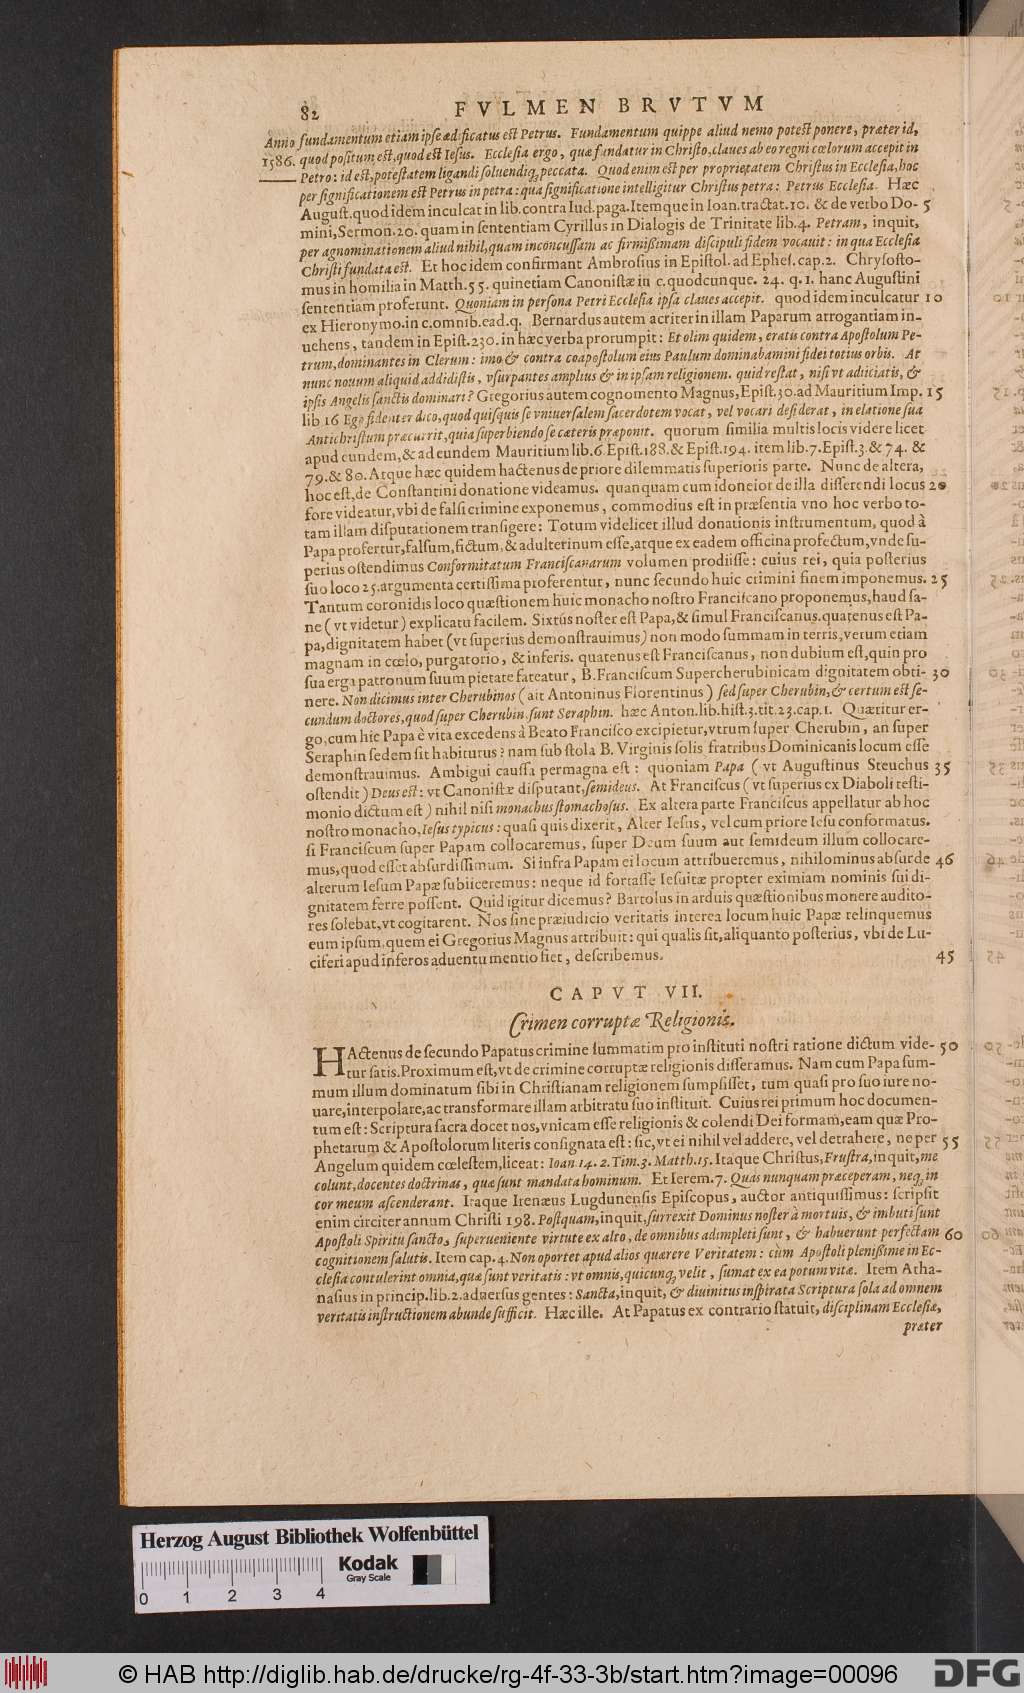 82 FVLMEN BRVTVM
Anno
1586.
fundamentum etiam ipse ædificatus est Petrus. Fundamentum quippe aliud nemo potest ponere, præter id,
quod positum est, quod est Iesus. Ecclesia ergo, quæ fundatur in Christo, claues ab eo regni cœlorum accepit in
Petro: id est, potestatem ligandi soluendiq́; peccata. Quod enim est per proprietatem Christus in Ecclesia, hoc
per significationem est Petrus in petra: qua significatione intelligitur Christus petra: Petrus Ecclesia. Hæc
August. quod idem inculcat in lib. contra Iud. paga. Itemque in Ioan. tractat. 10. & de verbo Do- 5
mini, Sermon. 20. quam in sententiam Cyrillus in Dialogis de Trinitate lib. 4. Petram, inquit,
per agnominationem aliud nihil, quam inconcussam ac firmißimam discipuli fidem vocauit: in qua Ecclesia
Christi fundata est. Et hoc idem confirmant Ambrosius in Epistol. ad Ephes. cap. 2. Chrysosto-
mus in homilia in Matth. 55. quinetiam Canonistæ in c. quodcunque. 24. q. 1. hanc Augustini
sententiam proferunt. Quoniam in persona Petri Ecclesia ipsa claues accepit. quod idem inculcatur 10
ex Hieronymo. in c. omnib. ead. q. Bernardus autem acriter in illam Paparum arrogantiam in-
uehens, tandem in Epist. 230. in hæc verba prorumpit: Et olim quidem, eratis contra Apostolum Pe-
trum, dominantes in Clerum: imo & contra coapostolum eius Paulum dominabamini fidei totius orbis. At
nunc nouum aliquid addidistis, vsurpantes amplius & in ipsam religionem. quid restat, nisi vt adiiciatis, &
ipsis Angelis sanctis dominari? Gregorius autem cognomento Magnus, Epist. 30. ad Mauritium Imp. 15
lib. 16 Ego fidenter dico, quod quisquis se vniuersalem sacerdotem vocat, vel vocari desiderat, in elatione sua
Antichristum præcurrit, quia superbiendo se cæteris præponit. quorum similia multis locis videre licet
apud eundem, & ad eundem Mauritium lib. 6. Epist. 188. & Epist. 194. item lib. 7. Epist. 3. & 74. &
79. & 80. Atque hæc quidem hactenus de priore dilemmatis superioris parte. Nunc de altera,
hoc est, de Constantini donatione videamus. quanquam cum idoneior de illa differendi locus 20
fore videatur, vbi de falsi crimine exponemus, commodius est in præsentia vno hoc verbo to-
tam illam disputationem transigere: Totum videlicet illud donationis instrumentum, quod à
Papa profertur, falsum, fictum, & adulterinum esse, atque ex eadem officina profectum, vnde su-
perius ostendimus Conformitatum Franciscanarum volumen prodiisse: cuius rei, quia posterius
suo loco 25. argumenta certissima proferentur, nunc secundo huic crimini finem imponemus. 25
Tantum coronidis loco quæstionem huic monacho nostro Franciscano proponemus, haud sa-
ne (vt videtur) explicatu facilem. Sixtus noster est Papa, & simul Franciscanus. quatenus est Pa-
pa, dignitatem habet (vt superius demonstrauimus) non modo summam in terris, verum etiam
magnam in cœlo, purgatorio, & inferis. quatenus est Franciscanus, non dubium est, quin pro
sua erga patronum suum pietate fateatur, B. Franciscum Supercherubinicam dignitatem obti- 30
nere. Non dicimus inter Cherubinos (ait Antoninus Florentinus) sed super Cherubin, & certum est se-
cundum doctores, quod super Cherubin sunt Seraphin. hæc Anton. lib. hist. 3. tit. 23. cap. 1. Quæritur er-
go, cum hic Papa è vita excedens à Beato Francisco excipietur, vtrum super Cherubin, an super
Seraphin sedem sit habiturus? nam sub stola B. Virginis solis fratribus Dominicanis locum esse
demonstrauimus. Ambigui caussa permagna est: quoniam Papa (vt Augustinus Steuchus 35
ostendit) Deus est: vt Canonistæ disputant, semideus. At Franciscus (vt superius ex Diaboli testi-
monio dictum est) nihil nisi monachus stomachosus. Ex altera parte Franciscus appellatur ab hoc
nostro monacho, Iesus typicus: quasi quis dixerit, Alter Iesus, vel cum priore Iesu conformatus.
si Franciscum super Papam collocaremus, super Deum suum aut semideum illum collocare-
mus, quod esset absurdissimum. Si infra Papam ei locum attribueremus, nihilominus absurde 40
alterum Iesum Papæ subiiceremus: neque id fortasse Iesuitæ propter eximiam nominis sui di-
gnitatem ferre possent. Quid igitur dicemus? Bartolus in arduis quæstionibus monere audito-
res solebat, vt cogitarent. Nos sine præiudicio veritatis interea locum huic Papæ relinquemus
eum ipsum, quem ei Gregorius Magnus attribuit: qui qualis sit, aliquanto posterius, vbi de Lu-
ciferi apud inferos aduentu mentio fiet, describemus. 45
CAPVT VII.
Crimen corruptæ Religionis.
HActenus de secundo Papatus crimine summatim pro instituti nostri ratione dictum vide- 50
tur satis. Proximum est, vt de crimine corruptæ religionis disseramus. Nam cum Papa sum-
mum illum dominatum sibi in Christianam religionem sumpsisset, tum quasi pro suo iure no-
uare, interpolare, ac transformare illam arbitratu suo instituit. Cuius rei primum hoc documen-
tum est: Scriptura sacra docet nos, vnicam esse religionis & colendi Dei formam, eam quæ Pro-
phetarum & Apostolorum literis consignata est: sic, vt ei nihil vel addere, vel detrahere, ne per 55
Angelum quidem cœlestem, liceat: Ioan. 14. 2. Tim. 3. Matth. 15. Itaque Christus, Frustra, inquit, me
colunt, docentes doctrinas, quæ sunt mandata hominum. Et Ierem. 7. Quas nunquam præceperam, neq́; in
cor meum ascenderant. Itaque Irenæus Lugdunensis Episcopus, auctor antiquissimus: scripsit
enim circiter annum Christi 198. Postquam, inquit, surrexit Dominus noster à mortuis, & imbuti sunt
Apostoli Spiritu sancto, superueniente virtute ex alto, de omnibus adimpleti sunt, & habuerunt perfectam 60
cognitionem salutis. Item cap. 4. Non oportet apud alios quærere Veritatem: cùm Apostoli plenißime in Ec-
clesia contulerint omnia, quæ sunt veritatis: vt omnis, quicunq́; velit, sumat ex ea potum vitæ. Item Atha-
nasius in princip. lib. 2. aduersus gentes: Sancta, inquit, & diuinitus inspirata Scriptura sola ad omnem
veritatis instructionem abunde sufficit. Hæc ille. At Papatus ex contrario statuit, disciplinam Ecclesiæ,
præter
Herzog August Bibliothek Wolfenbüttel
Kodak
Gray Scale
0 1 2 3 4
© HAB http://diglib.hab.de/drucke/rg-4f-33-3b/start.htm?image=00096
DFG